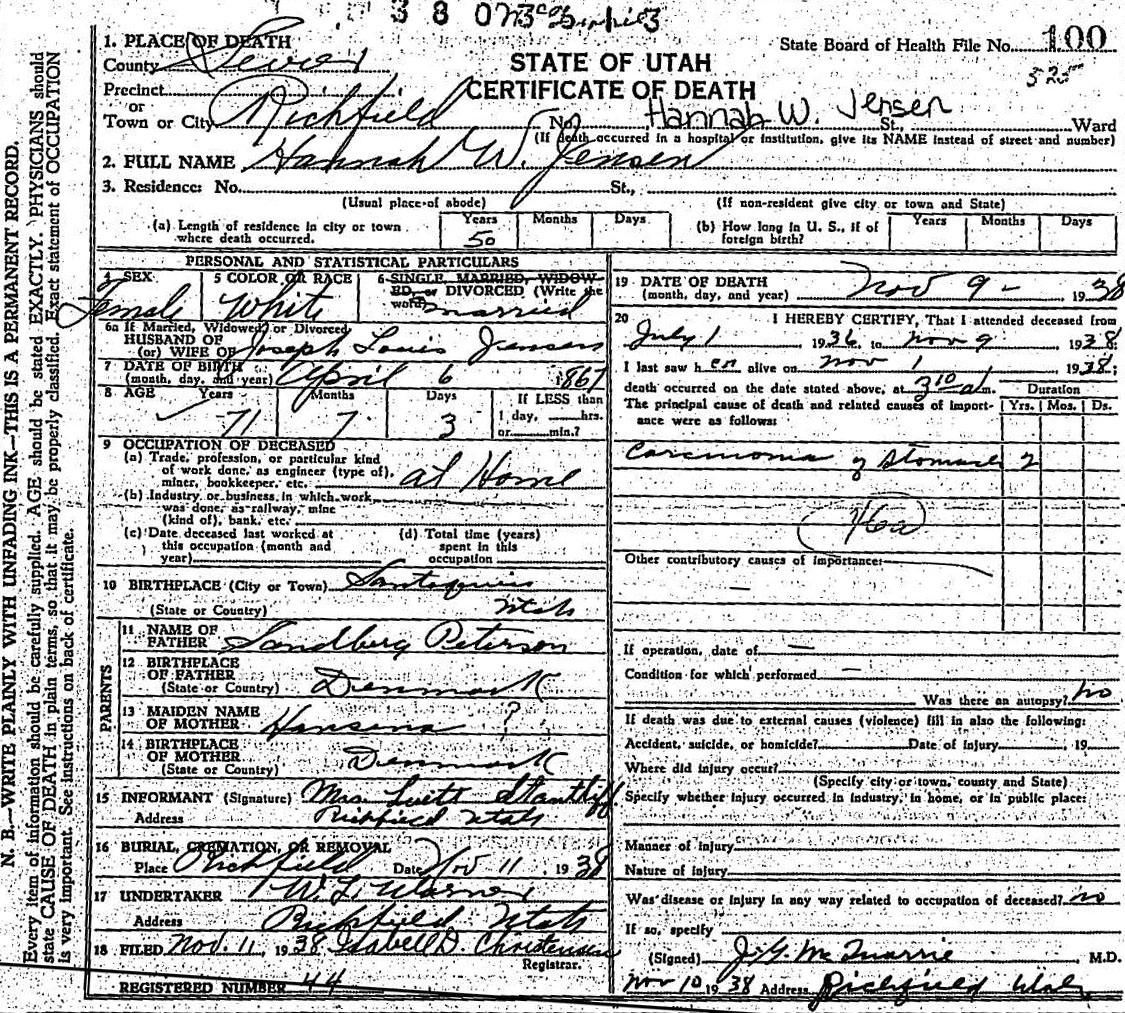 State Board of Health File No. 100
STATE OF UTAH
CERTIFICATE OF DEATH
1. PLACE OF DEATH
County Sevier
Precinct
or
Town or City Richfield No. Hannah W. Jensen St., Ward
(If death occurred in a hospital or institution, give its NAME instead of street and number)
2. FULL NAME Hannah W. Jensen
3. Residence: No. St.,
(Usual place of abode) (If non-resident give city or town and State)
(a) Length of residence in city or town where death occurred. Years 50 Months Days
(b) How long in U. S., if of foreign birth? Years Months Days
PERSONAL AND STATISTICAL PARTICULARS
4 SEX Female
5 COLOR OR RACE White
6 SINGLE, MARRIED, WIDOWED, or DIVORCED (Write the word) Married
6a If Married, Widowed, or Divorced
HUSBAND OF
(or) WIFE OF Joseph Louis Jensen
7 DATE OF BIRTH
(month, day, and year) April 6 1867
8 AGE Years 71 Months 7 Days 3 If LESS than
1 day, hrs.
or min.?
9 OCCUPATION OF DECEASED
(a) Trade, profession, or particular kind
of work done, as engineer (type of),
miner, bookkeeper, etc. at Home
(b) Industry or business in which work
was done, as railway, mine
(kind of), bank, etc.
(c) Date deceased last worked at
this occupation (month and
year)
(d) Total time (years)
spent in this
occupation
10 BIRTHPLACE (City or Town) Santaquin
(State or Country) Utah
PARENTS
11 NAME OF
FATHER Sandberg Peterson
12 BIRTHPLACE
OF FATHER
(State or Country) Denmark
13 MAIDEN NAME
OF MOTHER Hansena ?
14 BIRTHPLACE
OF MOTHER
(State or Country) Denmark
15 INFORMANT (Signature) Mrs.
Address Richfield Utah
16 BURIAL, CREMATION, OR REMOVAL
Place Richfield Date Nov 11 1938
17 UNDERTAKER W. L. Warner
Address Richfield Utah
18 FILED Nov. 11, 1938 Isabell D. Christensen
Registrar.
REGISTERED NUMBER 44
19 DATE OF DEATH
(month, day, and year) Nov 9 - 1938
20 I HEREBY CERTIFY, That I attended deceased from
July 1 1936, to Nov 9 1938;
I last saw her alive on Nov 1 1938;
death occurred on the date stated above, at 3 10 a m. Duration
The principal cause of death and related causes of importance were as follows: Yrs. Mos. Ds.
Carcinoma of Stomach 2
46a
Other contributory causes of importance:
If operation, date of —
Condition for which performed —
Was there an autopsy? no
If death was due to external causes (violence) fill in also the following:
Accident, suicide, or homicide? Date of injury 19
Where did injury occur?
(Specify city or town, county and State)
Specify whether injury occurred in industry, in home, or in public place:
Manner of injury
Nature of injury
Was disease or injury in any way related to occupation of deceased? no
If so, specify
(Signed) J. G. McQuarrie M.D.
Nov 10 1938 Address Richfield Utah
N. B.—WRITE PLAINLY WITH UNFADING INK—THIS IS A PERMANENT RECORD.
Every item of information should be carefully supplied. AGE should be stated EXACTLY. PHYSICIANS should
state CAUSE OF DEATH in plain terms, so that it may be properly classified. Exact statement of OCCUPATION
is very important. See instructions on back of certificate.